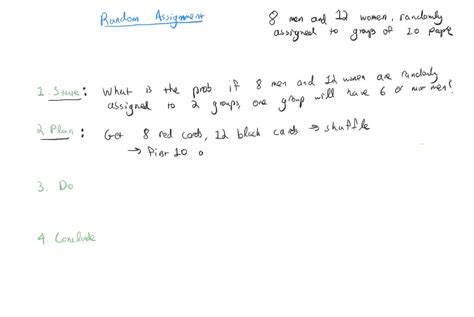 Random Assignment
8 men and 12 women, randomly
assigned to groups of 10 people
1. State: What is the prob. if 8 men and 12 women are randomly
assigned to 2 groups, one group will have 6 or more men?
2 Plan: Get 8 red cards, 12 black cards → shuffle
→ First 10 o
3. Do
4. Conclude